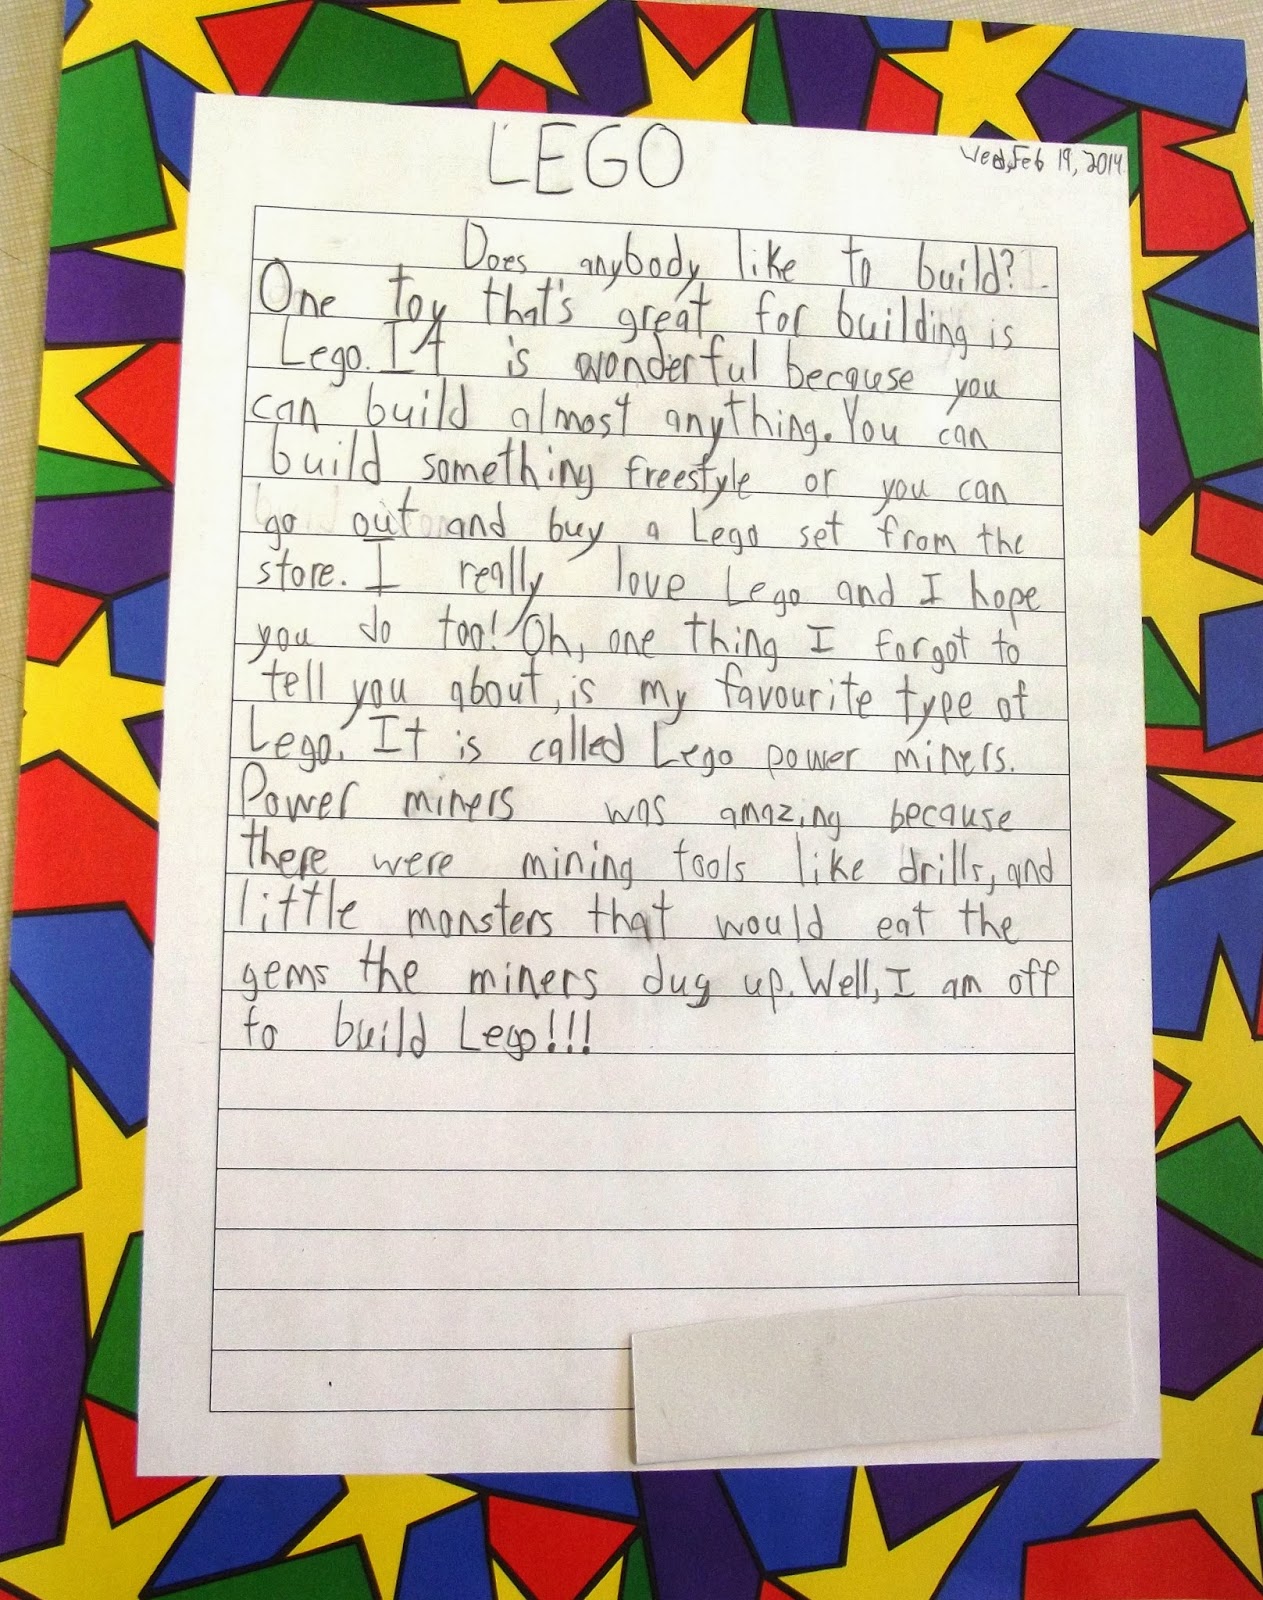 LEGO
Wed,Feb 19, 2014
Does anybody like to build?
One toy that's great for building is
Lego. It is wonderful because you
can build almost anything. You can
build something freestyle or you can
go out and buy a Lego set from the
store. I really love Lego and I hope
you do too! Oh, one thing I forgot to
tell you about, is my favourite type of
Lego. It is called Lego power miners.
Power miners was amazing because
there were mining tools like drills, and
little monsters that would eat the
gems the miners dug up. Well, I am off
to build Lego!!!